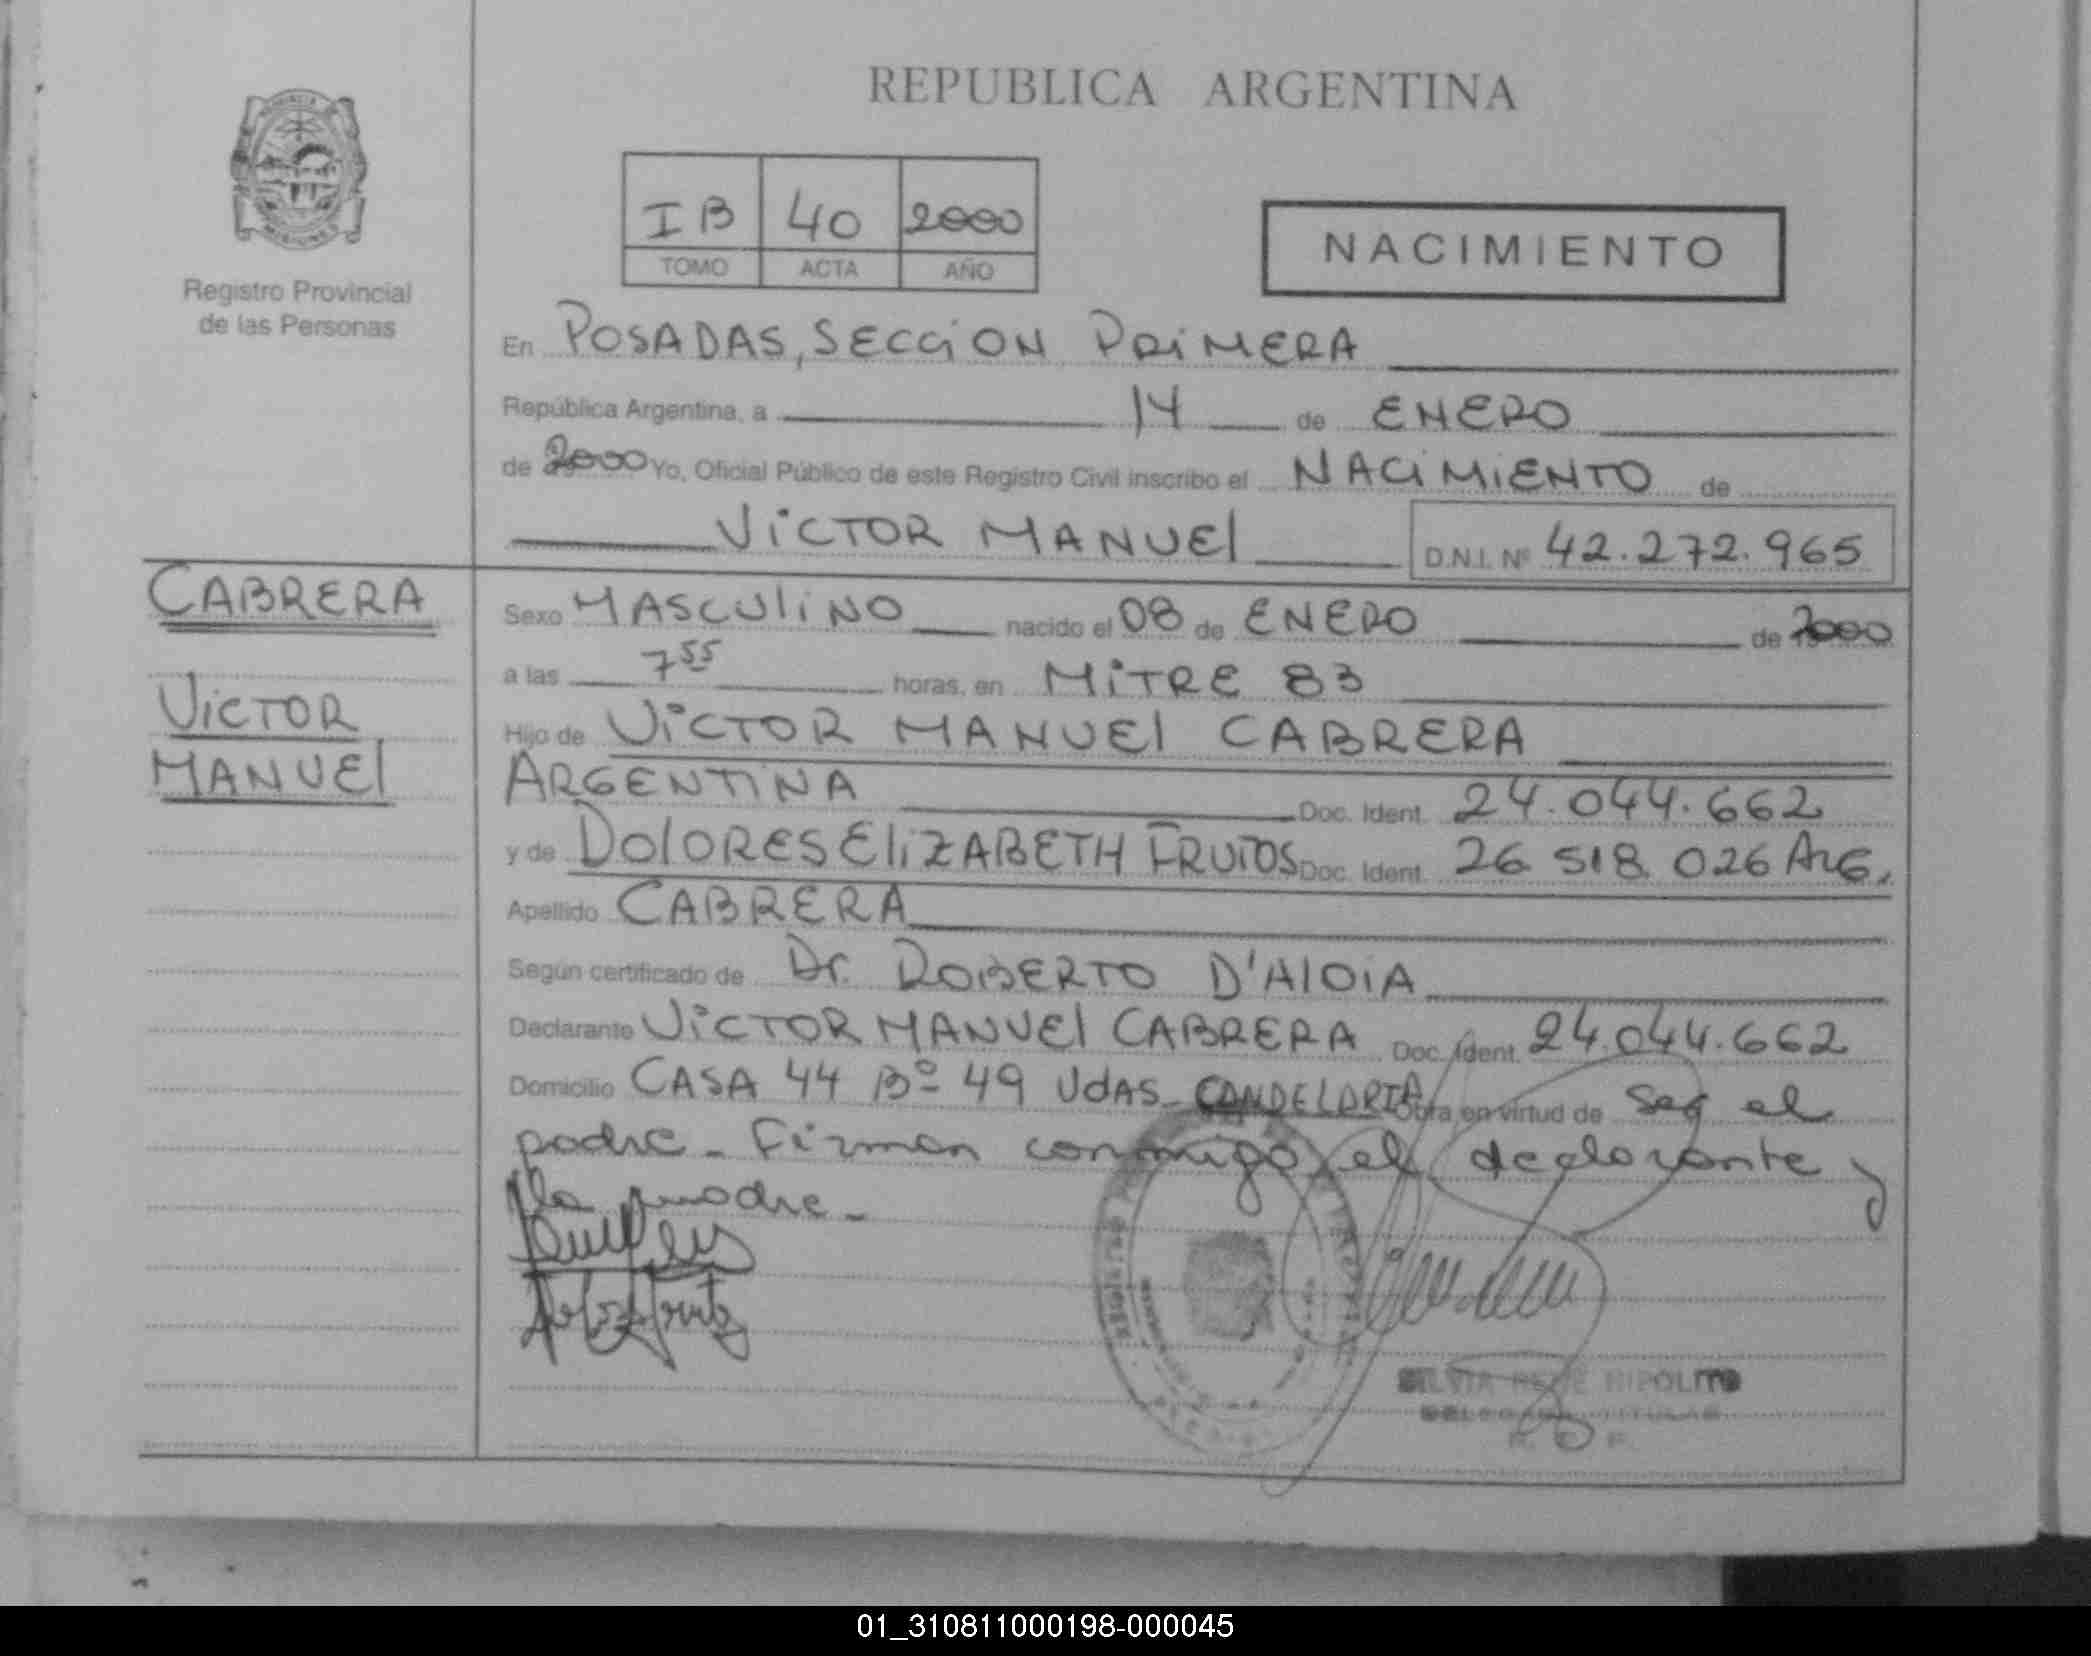 REPUBLICA ARGENTINA
PROVINCIA
MISIONES
Registro Provincial
de las Personas
IB 40 2000
TOMO ACTA AÑO
NACIMIENTO
En POSADAS, SECCION PRIMERA
República Argentina, a 14 de ENERO
de 2000 Yo, Oficial Público de este Registro Civil inscribo el NACIMIENTO de
VICTOR MANUEL D.N.I. Nº 42.272.965
CABRERA
VICTOR
MANUEL
Sexo MASCULINO nacido el 08 de ENERO de 2000
a las 7 55 horas, en MITRE 83
Hijo de VICTOR MANUEL CABRERA
ARGENTINA Doc. Ident. 24.044.662
y de DOLORES ELIZABETH FRUTOS Doc. Ident. 26 518 026 ARG.
Apellido CABRERA
Según certificado de Dr. ROBERTO D'ALOIA
Declarante VICTOR MANUEL CABRERA Doc. Ident. 24.044.662
Domicilio CASA 44 Bº 49 VdAS CANDELARIA Obra en virtud de ser el
padre - Firman conmigo el declarante y
la madre -
SILVIA RENE HIPOLITO
DELEGADA TITULAR
R. P.
01_310811000198-000045